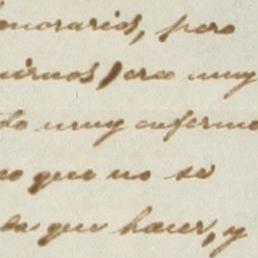 honorarios, pero
era muy
do muy enfermo
que no se
que hacer, y